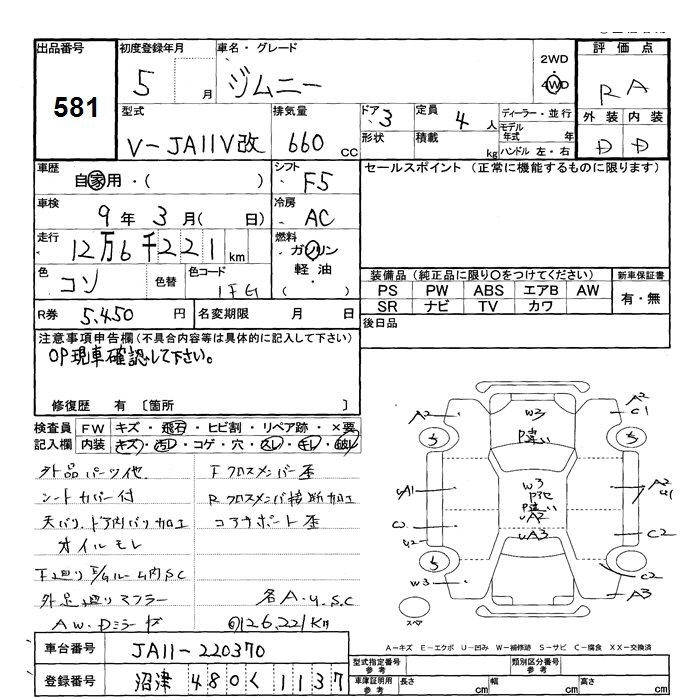 出品番号
581
初度登録年月
5 月
車名・グレード
ジムニー
2WD
4WD
評価点
RA
外装 内装
D D
型式
V-JA11V改
排気量
660 cc
ドア 3
定員 4 人
形状
積載 kg
ディーラー・並行
モデル年式 年
ハンドル 左・右
車歴
自家用・( )
シフト
F5
セールスポイント (正常に機能するものに限ります)
車検
9年 3月( 日)
冷房
AC
走行
12万6千221km
燃料
ガソリン
軽油・
( )
色
コン
色替
色コード
1FG
装備品(純正品に限り○をつけてください)
PS PW ABS エアB AW
SR ナビ TV カワ
新車保証書
有・無
R券 5,450 円
名変期限 月 日
後日品
注意事項申告欄(不具合内容等は具体的に記入して下さい)
OP現車確認して下さい。
修復歴 有 〔箇所 〕
検査員記入欄
FW キズ・飛石・ヒビ割・リペア跡・×要
内装 キズ・汚レ・コゲ・穴・スレ・キレ・破レ
外品パーツ他
シートカバー付
天バリ、ドア内バリ加工
オイルモレ
外足廻りマフラー
AW.Dミラーサ
Fクロスメンバー歪
Rクロスメンバ接助加工
コアサポート歪
各A.U.S.C
@126,221KM
A2
W2
P違い
A2
C1
W3
P他
P違い
UA2
UA3
C2
C2
A3
W3
スペア
A-キズ E-エクボ U-凹み W-補修跡 S-サビ C-腐食 XX-交換済
車台番号 JA11-220370
登録番号 沼津 480 く 1137
型式指定番号 参考
類別区分番号 参考
車庫証明用 参考
長さ cm
幅 cm
高さ cm